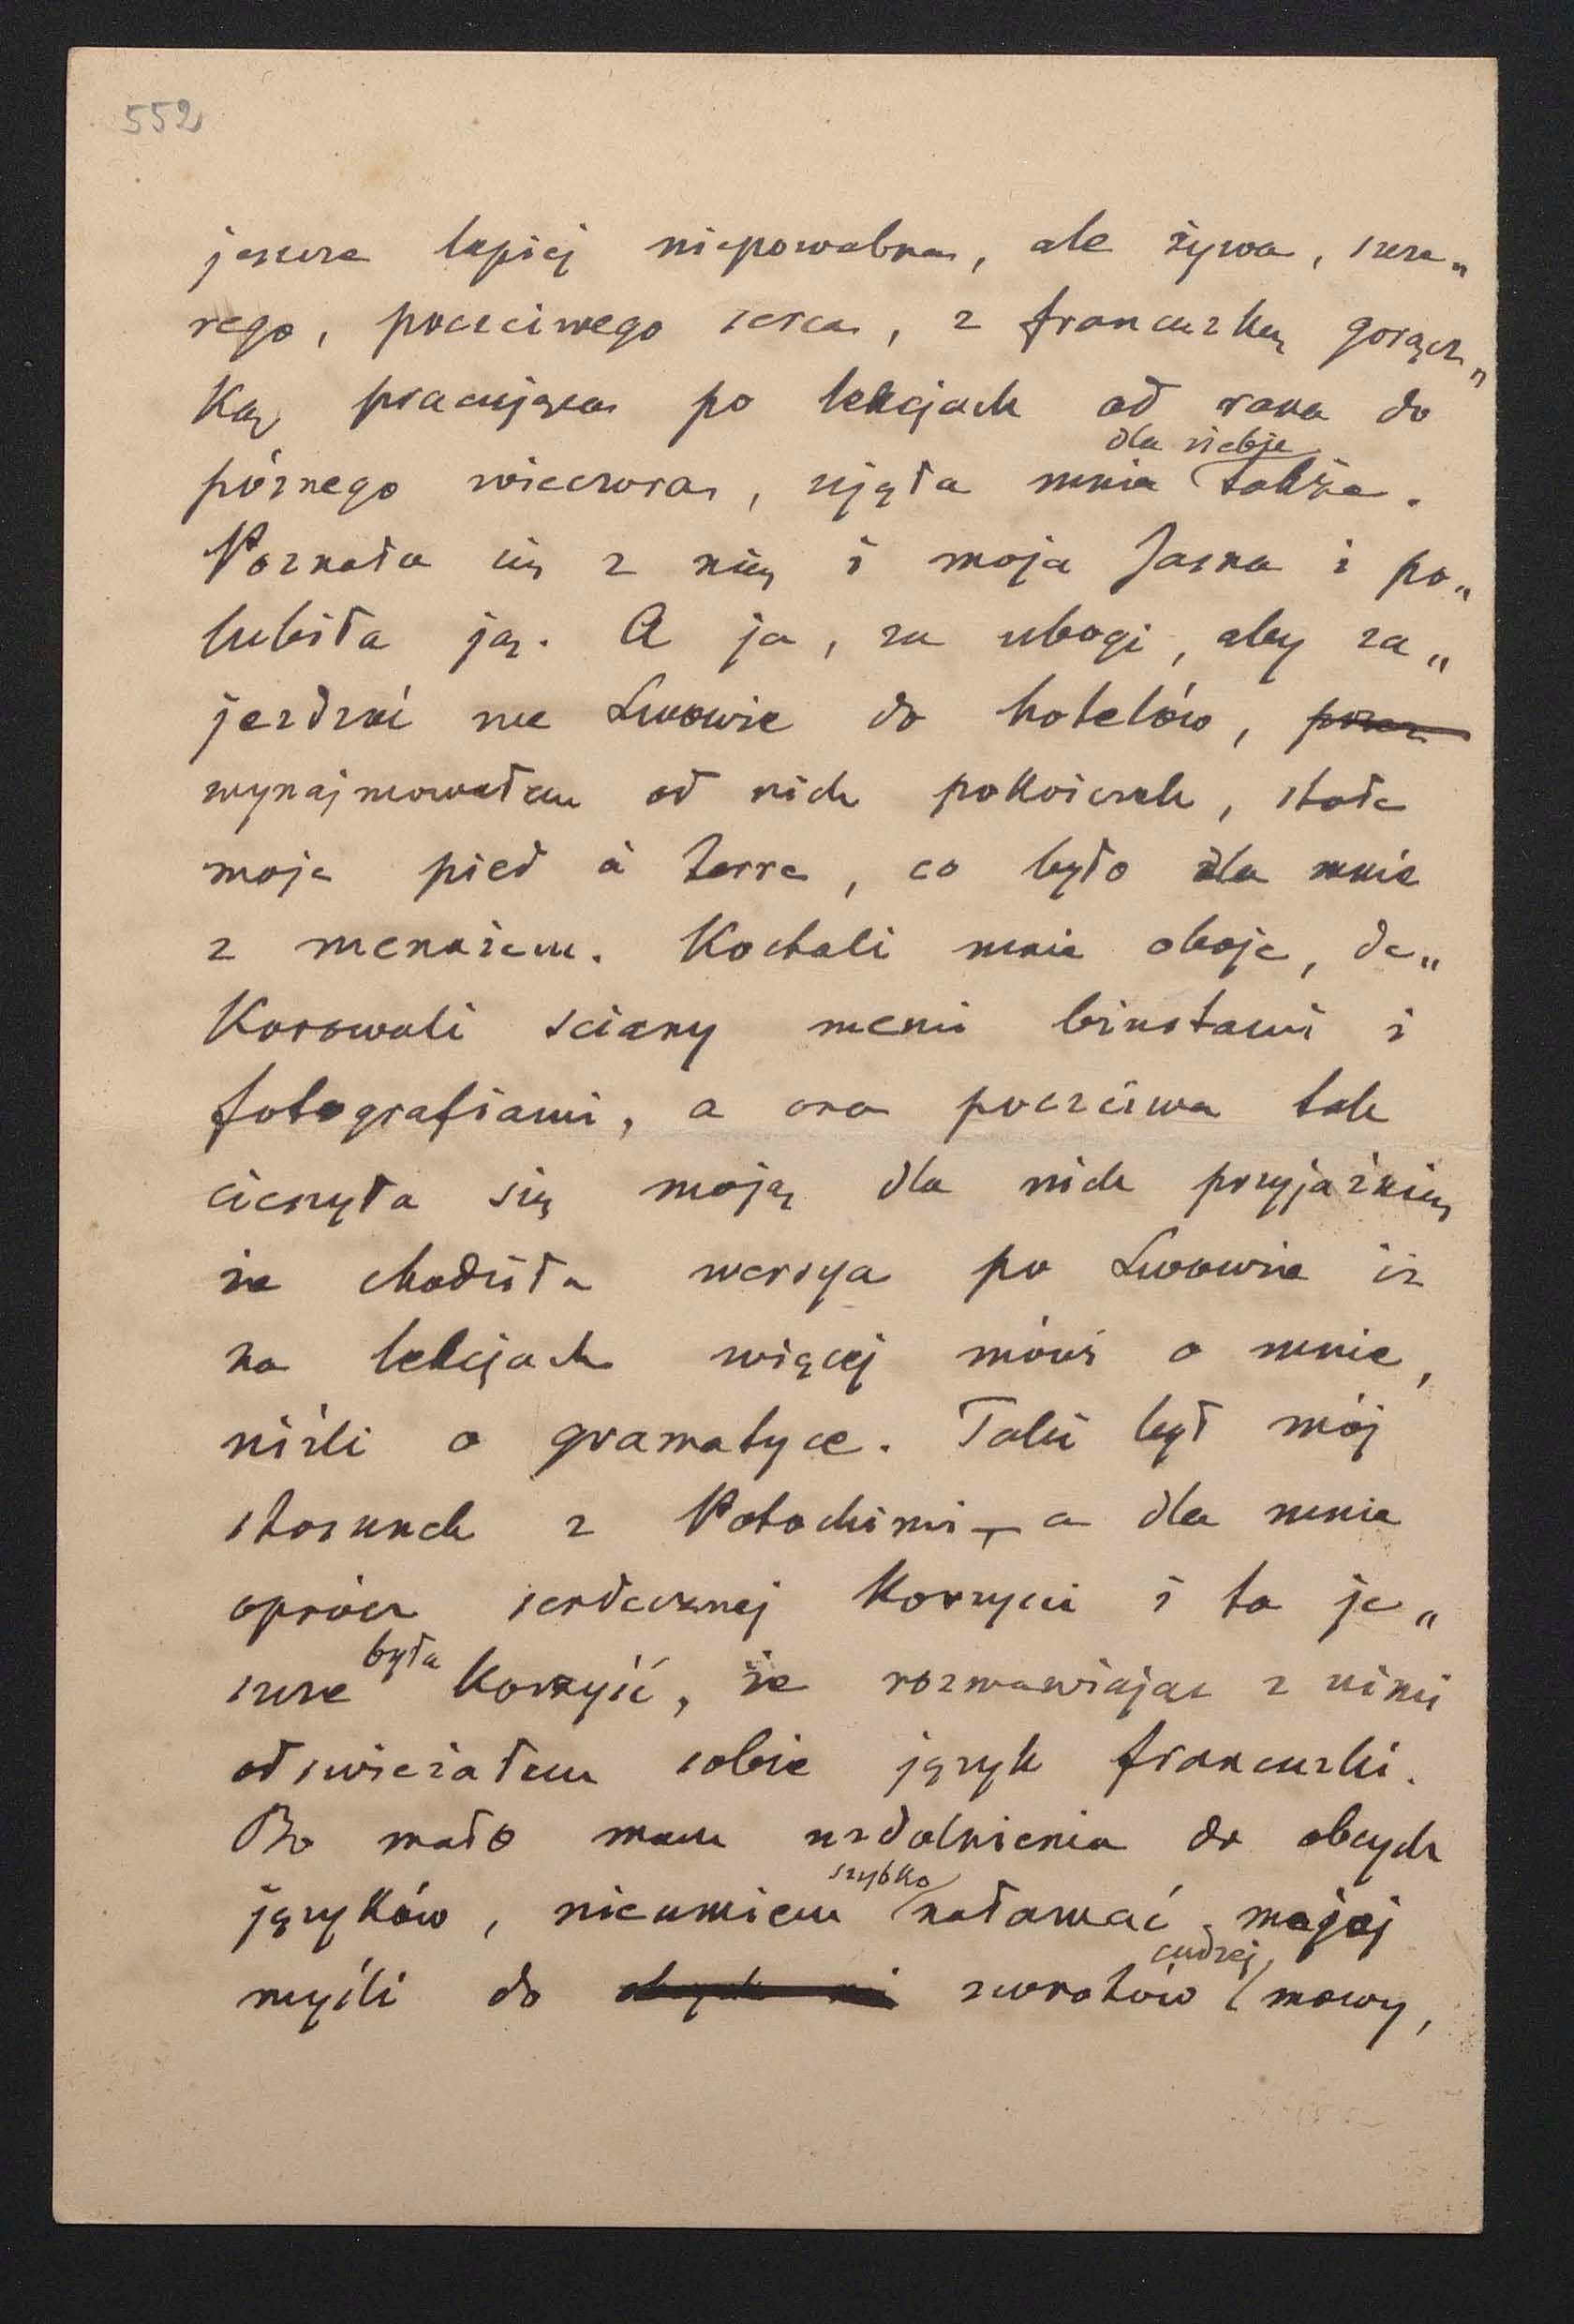 552
jeszcze lepiej niepowabna, ale żywa, szcze„
rego, poczciwego serca, z francuzką gorącz„
ką pracująca po lekcjach od rana do
dla siebie
póznego wieczora, ujęła mnie także.
Poznała się z nią i moja Jasna i po„
lubiła ją. A ja, za ubogi, aby za„
jezdzać we Lwowie do hotelów,
wynajmowałem od nich pokoiczek, stałe
moje pied à terre, co było dla mnie
z menażem. Kochali mnie oboje, de„
korowali sciany memi biustami i
fotografiami, a ona poczciwa tak
cieszyła się moją dla nich przyjaźnią
że chodziła wersya po Lwowie iz
na lekcjach więcej mówi o mnie,
niżli o gramatyce. Taki był mój
stosunek z Potockimi — a dla mnie
oprócz serdecznej korzyści i ta je„
była
szcze korzyść, że rozmawiając z nimi
odswieżałem sobie język francuzki.
Bo mało mam uzdolnienia do obcych
szybko
języków, nieumiem naławać mojej
cudzej
myśli do zwrotów mowy,